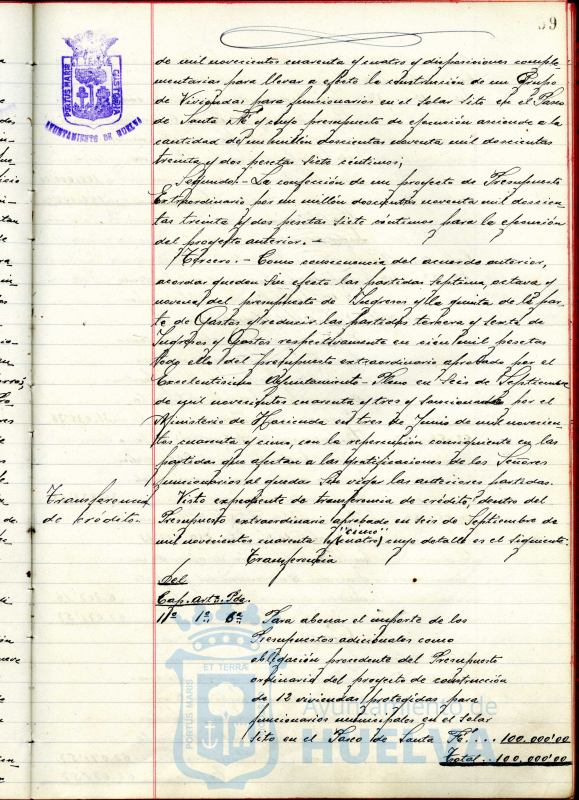 39
PORTUS MARIS
CUSTODIA
AYUNTAMIENTO DE HUELVA
de mil novecientos cuarenta y cuatro y disposiciones comple-
mentarias para llevar a efecto la construcción de un Grupo
de Viviendas para funcionarios en el Solar sito en el Paseo
de Santa Fé y cuyo presupuesto de ejecución asciende a la
cantidad de un millón doscientas noventa mil doscientas
treinta y dos pesetas siete céntimos;
Segundo.- La confección de un proyecto de Presupuesto
Extraordinario por un millón doscientas noventa mil doscien-
tas treinta y dos pesetas siete céntimos para la ejecución
del proyecto anterior.-
Tercero.- Como consecuencia del acuerdo anterior,
acordar queden sin efecto las partidas septima, octava y
novena del presupuesto de Ingresos y la quinta de la par-
te de Gastos y reducir las partidas tercera y sexta de
Ingresos y Gastos respectivamente en cien mil pesetas
todo ello del Presupuesto extraordinario aprobado por el
Excelentísimo Ayuntamiento-Pleno en seis de Septiembre
de mil novecientos cuarenta y tres y sancionado por el
Ministerio de Hacienda en tres de Junio de mil novecien-
tos cuarenta y cinco, con la repercusión consiguiente en las
partidas que afectan a las gratificaciones de los Señores
funcionarios al quedar sin vigor las anteriores partidas.
Transferencia
de crédito.-
Visto expediente de transferencia de crédito, dentro del
Presupuesto extraordinario aprobado en seis de Septiembre de
"cinco"
mil novecientos cuarenta y (cuatro) cuyo detalle es el siguiente:
Transferencia
Del
Cap. Artº. Pda.
11º 1º 6ª Para abonar el importe de los
Presupuestos adicionales como
obligación procedente del Presupuesto
ordinario del proyecto de construcción
de 12 viviendas protegidas para
funcionarios municipales en el solar
sito en el Paseo de Santa Fé.... 100.000'00
Total.. 100.000'00
ET TERRÆ
PORTUS MARIS
Ayuntamiento de
HUELVA